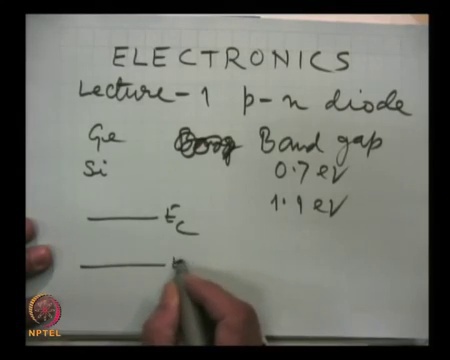 ELECTRONICS
Lecture - 1 p-n diode
Ge Band gap
Si 0.7 eV
1.1 eV
Ec
NPTEL